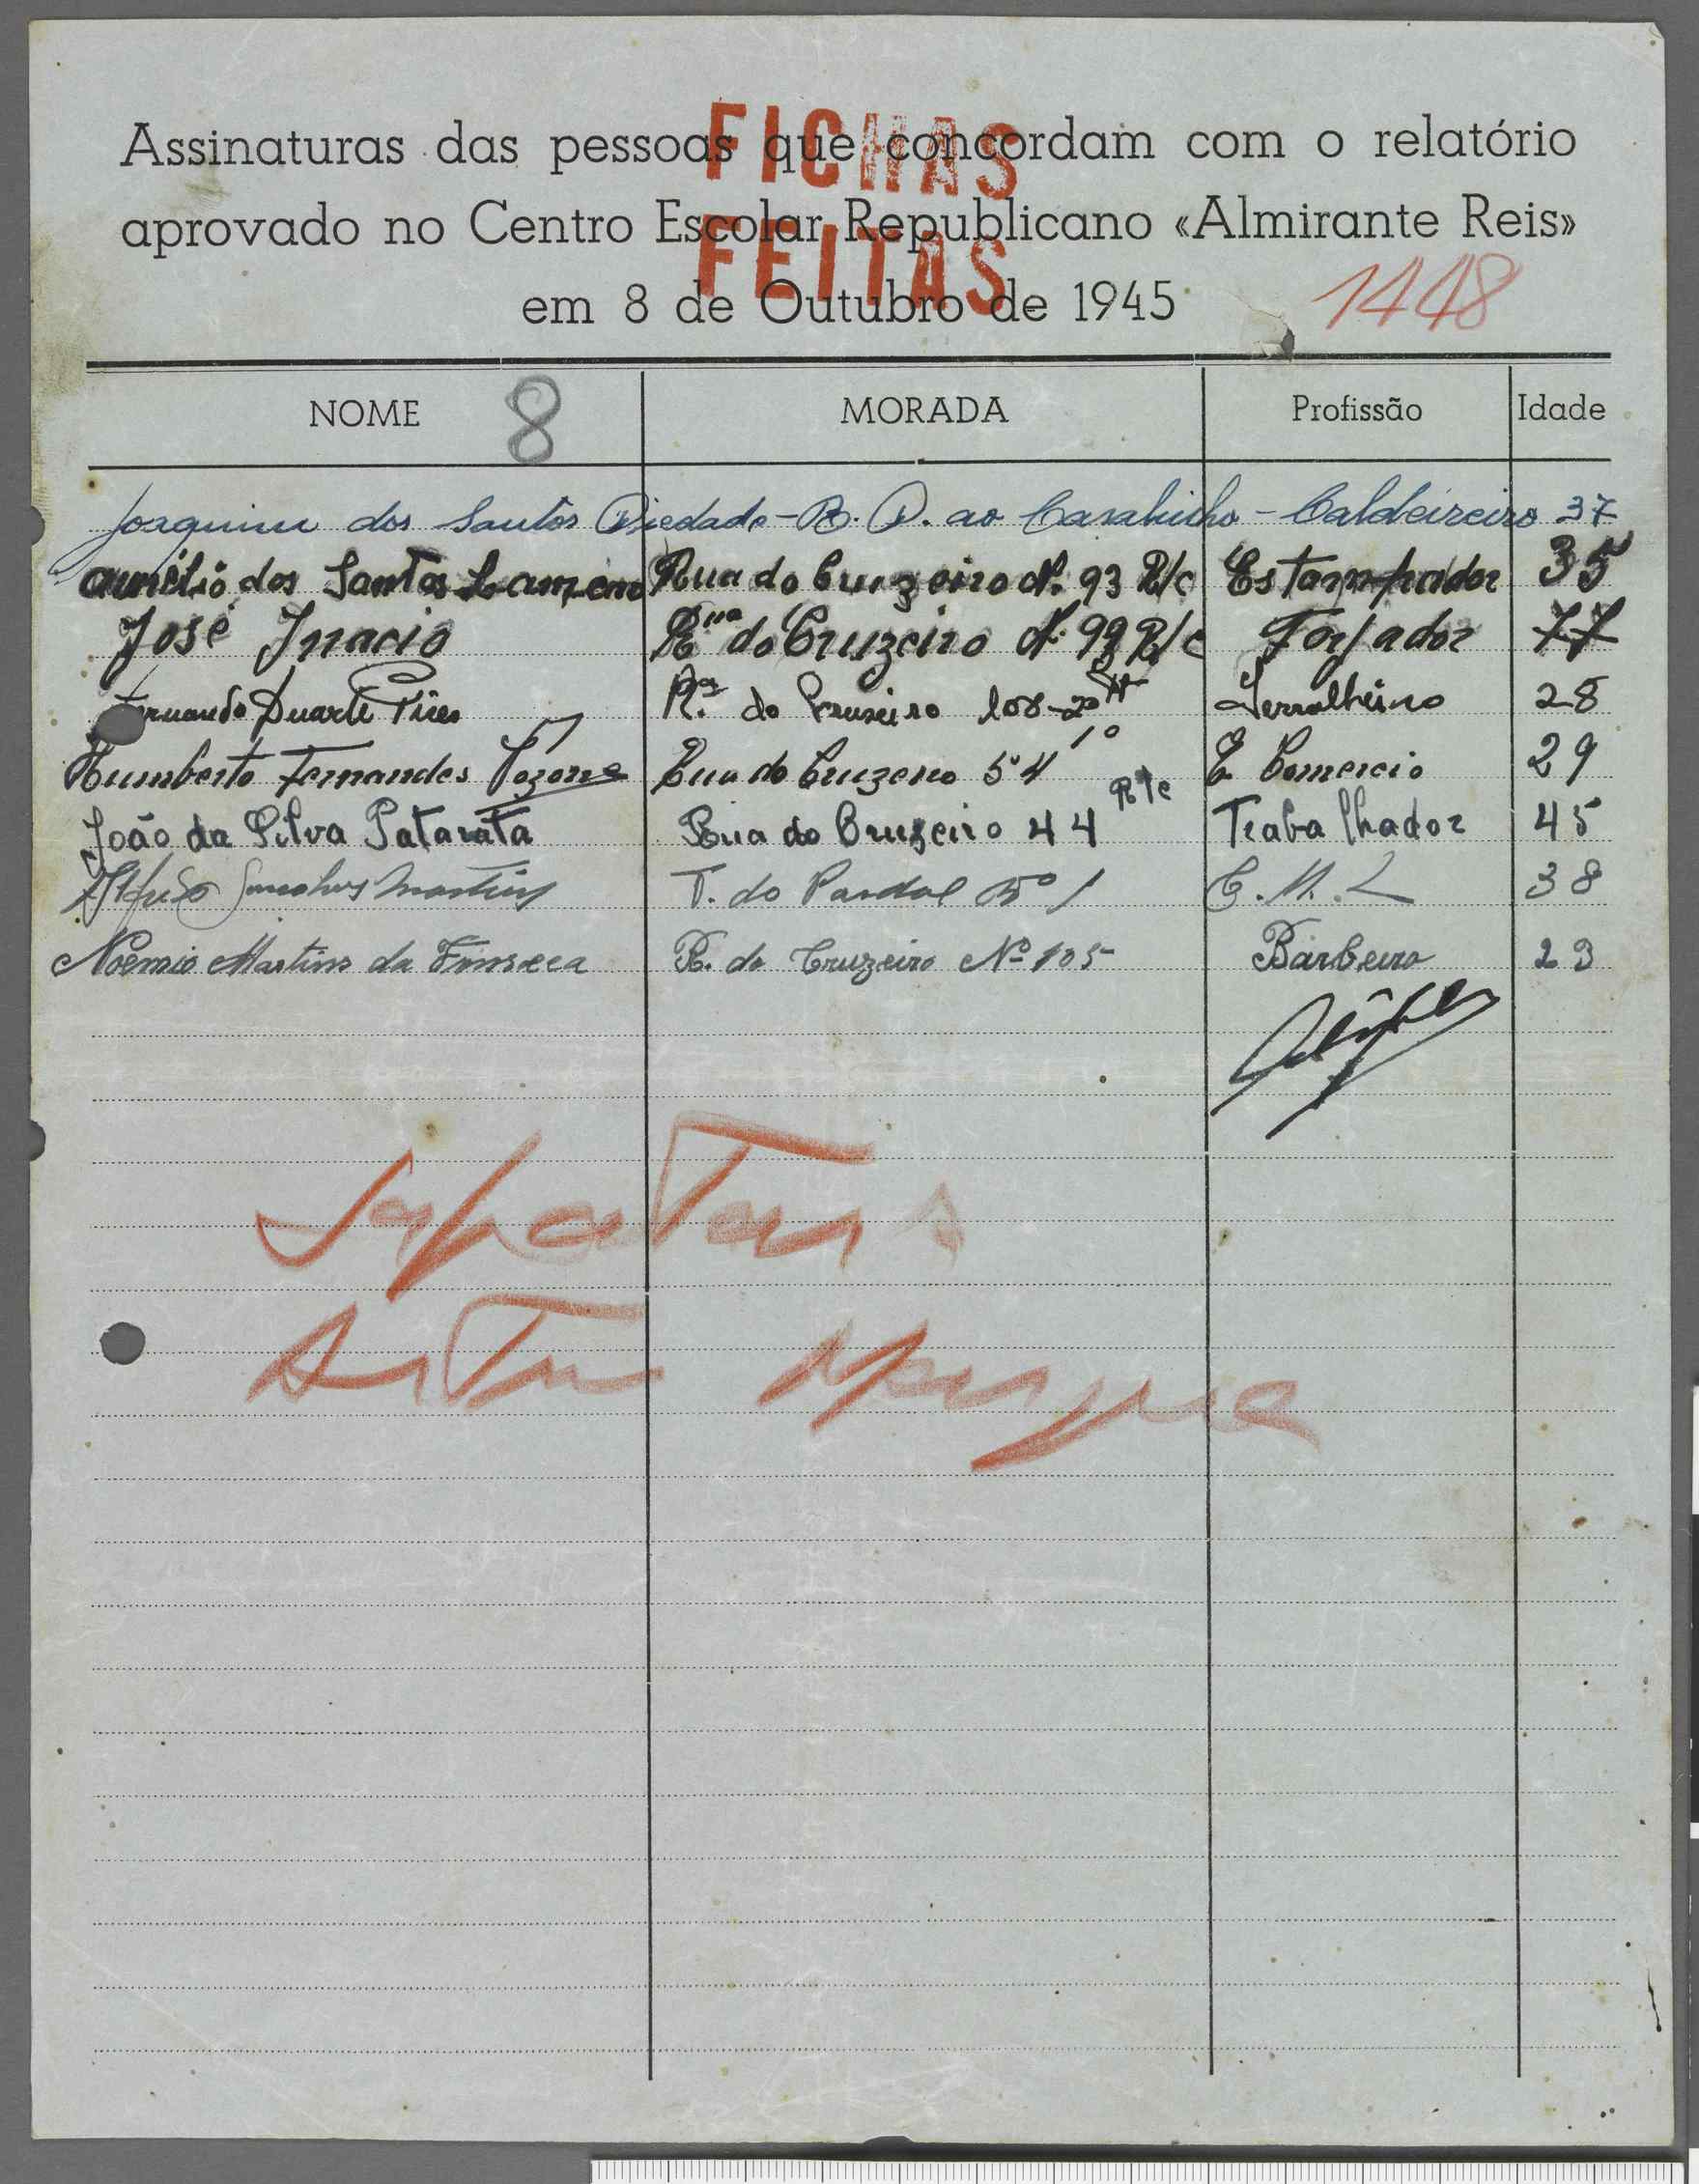 FICHAS
FEITAS
Assinaturas das pessoas que concordam com o relatório
aprovado no Centro Escolar Republicano «Almirante Reis»
em 8 de Outubro de 1945
1448
NOME 8 MORADA Profissão Idade
Joaquim dos Santos Piedade - R. D. ao Casalinho - Caldeireiro 37
Aurélio dos Santos Rua do Cruzeiro Nº 93 R/c Estampador 35
José Inacio Rua do Cruzeiro Nº 99 R/c Forjador 77
Fernando Duarte Pires R.ª do Cruzeiro 108-2º Serralheiro 28
Humberto Fernandes Rua do Cruzeiro 54 1º E Comercio 29
João da Silva Patarata Rua do Cruzeiro 44 R/c Trabalhador 45
Gonçalves Martins T. do Pardal Nº 1 C.M.L 38
Noémio Martins da Fonseca R. do Cruzeiro Nº 105 Barbeiro 23
Artur